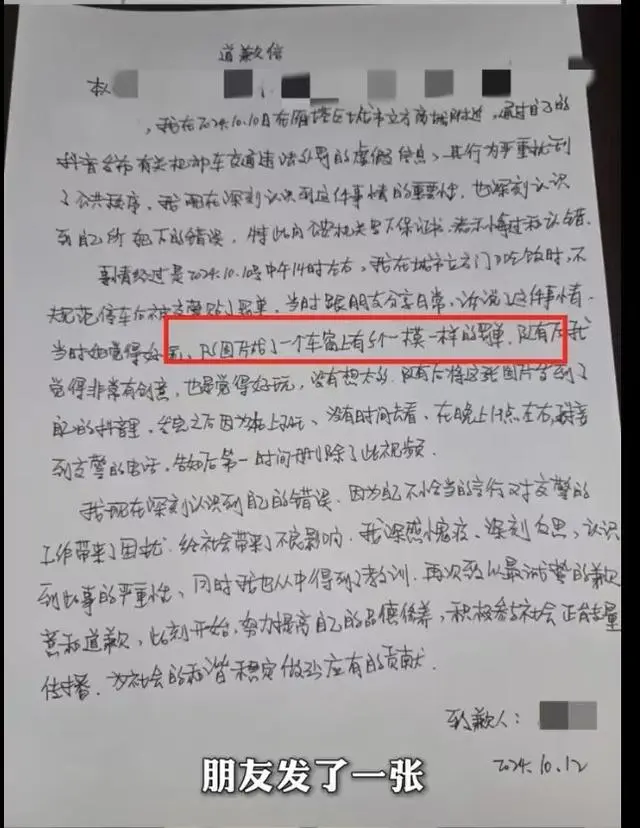 道歉信
本人
，我在2024.10.10日在雁塔区城市立方商场附近，通过自己的
抖音发布有关机动车交通违法处罚的虚假信息，其行为严重扰乱到
了公共秩序，我现在深刻认识到这件事情的重要性，也深刻认识
到自己所犯下的错误，特此向公安机关写下保证书，表示悔过和认错．
事情经过是2024.10.10号中午14时左右，我在城市立方门口吃饭时，不
规范停车后被交警贴了罚单，当时跟朋友分享日常，诉说了这件事情．
当时她觉得好，P图片了一个车窗上有5个一模一样的罚单，随后我
觉得非常有创意，也觉得好玩，没有想太多，随后将这张图片发到了
自己的抖音里，发完之后因为在上班，没有时间去看，在晚上点左右，接
到交警的电话，告知后第一时间删除了此视频．
我现在深刻认识到自己的错误，因为自己不恰当的言行对交警的
工作带来了困扰，给社会带来了不良影响，我深感愧疚，深刻反思，认识
到此事的严重性，同时我也从中得到了教训，再次致以最诚挚的歉
意和道歉，此刻开始，努力提高自己的品德修养，积极参与社会正能量
传播，为社会的和谐稳定做出应有的贡献．
致歉人：
2024.10.12
朋友发了一张